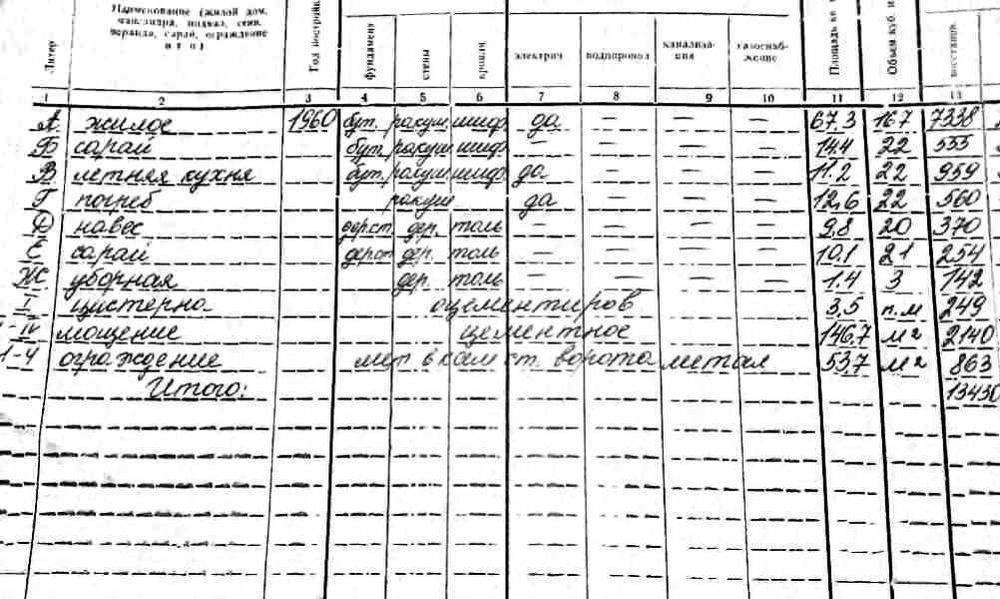 Литер
Наименование (жилой дом,
мансандра, подвал, сени,
веранда, сарай, ограждение
и т о)
Год построй
фундамент
стены
кровля
электрич
водопровод
канализа-
ция
газоснаб-
жение
Площадь кв
Объем куб. и
восстанов.
1 2 3 4 5 6 7 8 9 10 11 12 13
А. жилое 1960 бут. ракуш шиф. да — — — 67.3 167 7338
Б сарай бут. ракуш шиф. — — — — 14.4 22 555
В летняя кухня бут. ракуш шиф. да — — — 11.2 22 959
Г погреб ракуш да — — — 12,6 22 560
Д навес дер.ст. дер. толь — — — — 9.8 20 370
Е сарай дер.ст дер. толь — — — — 10.1 21 254
Ж уборная дер. толь — — — — 1.4 3 142
I цистерна оцементиров 3,5 п.м 249
-IV мощение цементное 146,7 м² 2140
1-4 ограждение мет в кам ст. ворота метал 53,7 м² 863
Итого: 13430